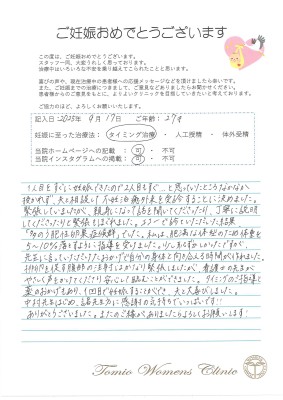 ご妊娠おめでとうございます
この度は、ご妊娠おめでとうございます。
スタッフ一同、大変うれしく思っております。
治療中はいろいろな不安を乗り越えてこられたことと思います。
喜びの声や、現在治療中の患者様への応援メッセージなどを頂けましたら幸いです。
また、ご妊娠までの治療につきまして、ご意見などありましたらお聞かせください。
患者様からのご意見をもとに、よりよいクリニックを目指していきたいと考えております。
ご協力のほど、よろしくお願いいたします。
記入日：2025年 9月 17日 ご年齢：27才
妊娠に至った治療法：タイミング治療・人工授精・体外受精
当院ホームページへの記載：可・不可
当院インスタグラムへの掲載：可・不可
1人目をすぐに妊娠できたので2人目もすぐ…と思っていたところなかなか
授かれず、夫と相談し不妊治療外来を受診することに決めました。
緊張していましたが、親身になって話を聞いてくださったり、丁寧に説明
してくださったりと安心して通えました。
「多のう胞性卵巣症候群」でした。私は、肥満
5～10%落とすように指導を受けました。
先生に言っていただけたおかげで自分の身体と向き合う時間が作れました。
やさしく声をかけてくださり安心して
薬のおかげもあり、1回目で妊娠することができ、夫と大喜びしました。
中村先生はじめ、諸先生方に感謝の気持ちでいっぱいです!!
ありがとうございました。またのご縁がありましたらよろしくお願いします!
Tomio Womens Clinic